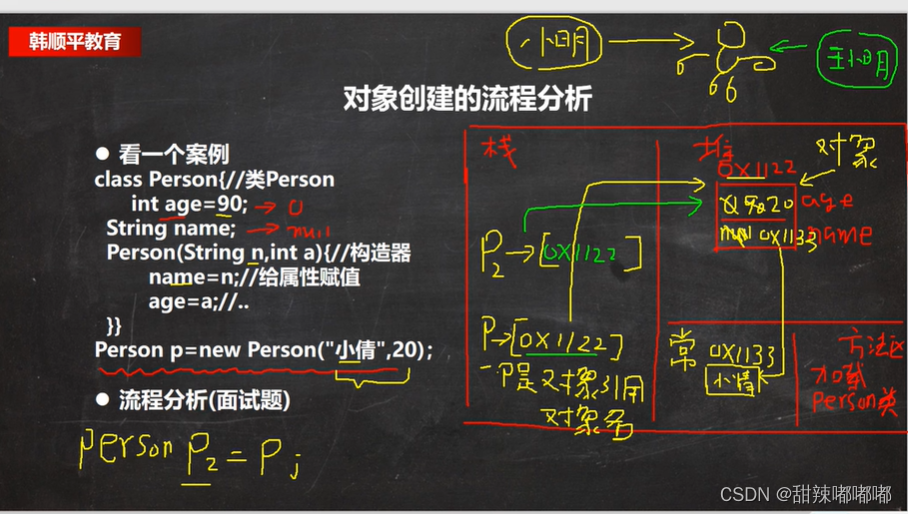 韩顺平教育
小明
王小明
对象创建的流程分析
● 看一个案例
class Person{//类Person
int age=90; → 0
String name; → null
Person(String n,int a){//构造器
name=n;//给属性赋值
age=a;//..
}}
Person p=new Person("小倩",20);
● 流程分析(面试题)
Person P2 = P;
栈
P2→[0X1122]
P→[0X1122]
P是对象引用
对象名
堆
对象
0X1122
90 20 age
null 0X1133 name
常
0X1133
小倩
方法区
加载
Person类
CSDN @甜辣嘟嘟嘟